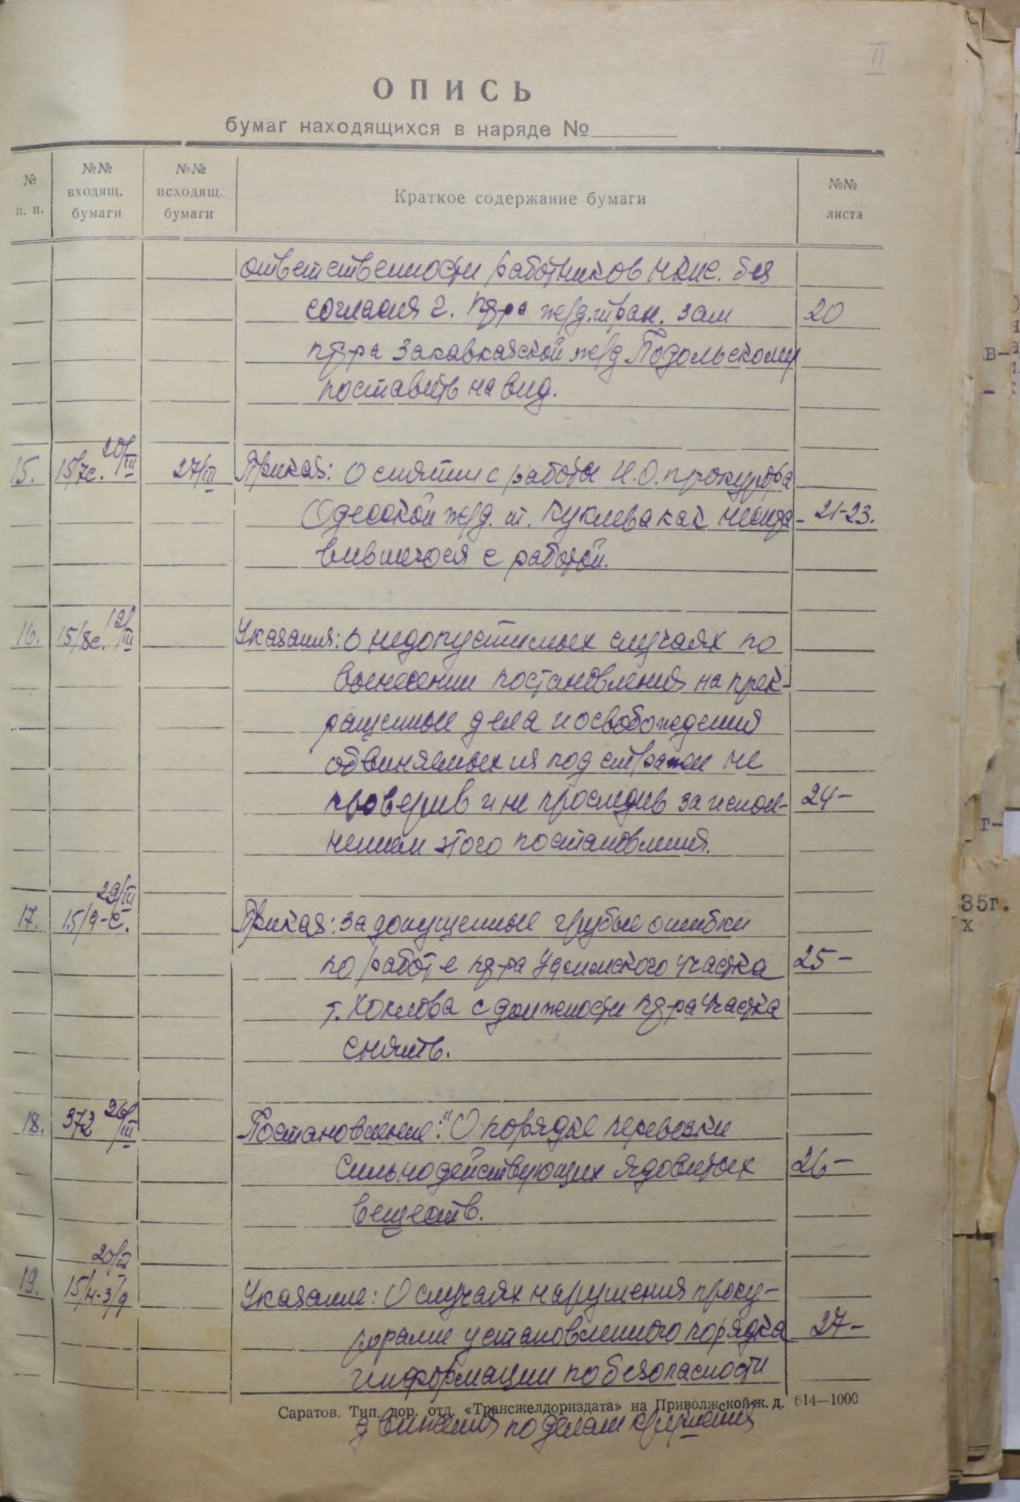 II
ОПИСЬ
бумаг находящихся в наряде №
№ п. п. №№ входящ. бумаги №№ исходящ. бумаги Краткое содержание бумаги №№ листа
ответственности работников НКПС. без
согласия г. пр-ра ж/д. тран. зам 20
пр-ра Закавказской ж/д Подольскому
поставить на вид.
15. 15/7с. 20/III 27/III Приказ: О снятии с работы И.О. прокурора
Одесской ж/д. т. Куклева как неспра- 21-23.
вившегося с работой.
16. 15/8с. 19/III Указания: о недопустимых случаях по
вынесении постановления на прек-
ращенные дела и освобождения
обвиняемых из под стражи не
проверив и не проследив за испол- 24-
нением этого постановления.
17. 15/9-с. 29/III Приказ: за допущенные грубые ошибки
по работе пр-ра участка 25-
т. с должности пр-ра участка
снять.
18. 372 26/III Постановление: "О порядке перевозки
сильнодействующих ядовитых 26-
веществ.
19. 15/4-3/9 20/III Указание: О случаях нарушения проку-
рорами установленного порядка 27-
информации по безопасности
Саратов. Тип. дор. отд. «Трансжелдориздата» на Приволжской ж. д. 614—1000
движения по делам крушения
В-
-
г-
35г.
х